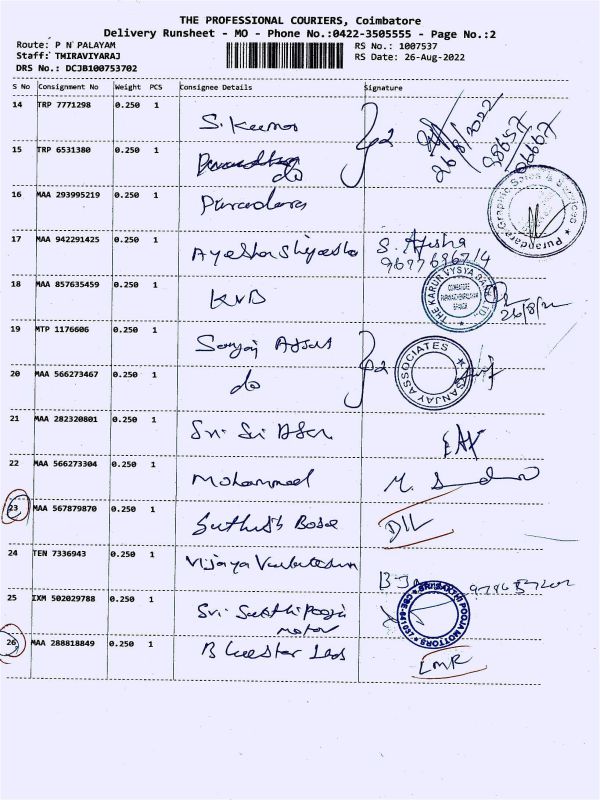 THE PROFESSIONAL COURIERS, Coimbatore
Delivery Runsheet - MO - Phone No.:0422-3505555 - Page No.:2
Route: P N PALAYAM
Staff: TMIRAVIYARAJ
DRS No.: DCJB100753702
RS No.: 1007537
RS Date: 26-Aug-2022
S No Consignment No Weight PCS Consignee Details Signature
14 TRP 7771298 0.250 1
S. Kumar
26/8/2022
15 TRP 6531380 0.250 1
do
16 MAA 293995219 0.250 1
Purandara
17 MAA 942291425 0.250 1
S. Afisha
18 MAA 857635459 0.250 1
KVB
THE KARUR VYSYA BANK LTD.
COIMBATORE
BRANCH
26/8/22
19 MTP 1176606 0.250 1
Sanjay Assts
SANJAY ASSOCIATES
20 MAA 566273467 0.250 1
do
21 MAA 282320801 0.250 1
Sri Sri
22 MAA 566273304 0.250 1
Mohammed
23 MAA 567879870 0.250 1
Suthish Bose
DIL
24 TEN 7336943 0.250 1
Vijaya
25 IXM 502029788 0.250 1
Sri Sakthi Pooja
Motor
SRI SAKTHI POOJA MOTTORS
26 MAA 288818849 0.250 1
Bluestar
LMR